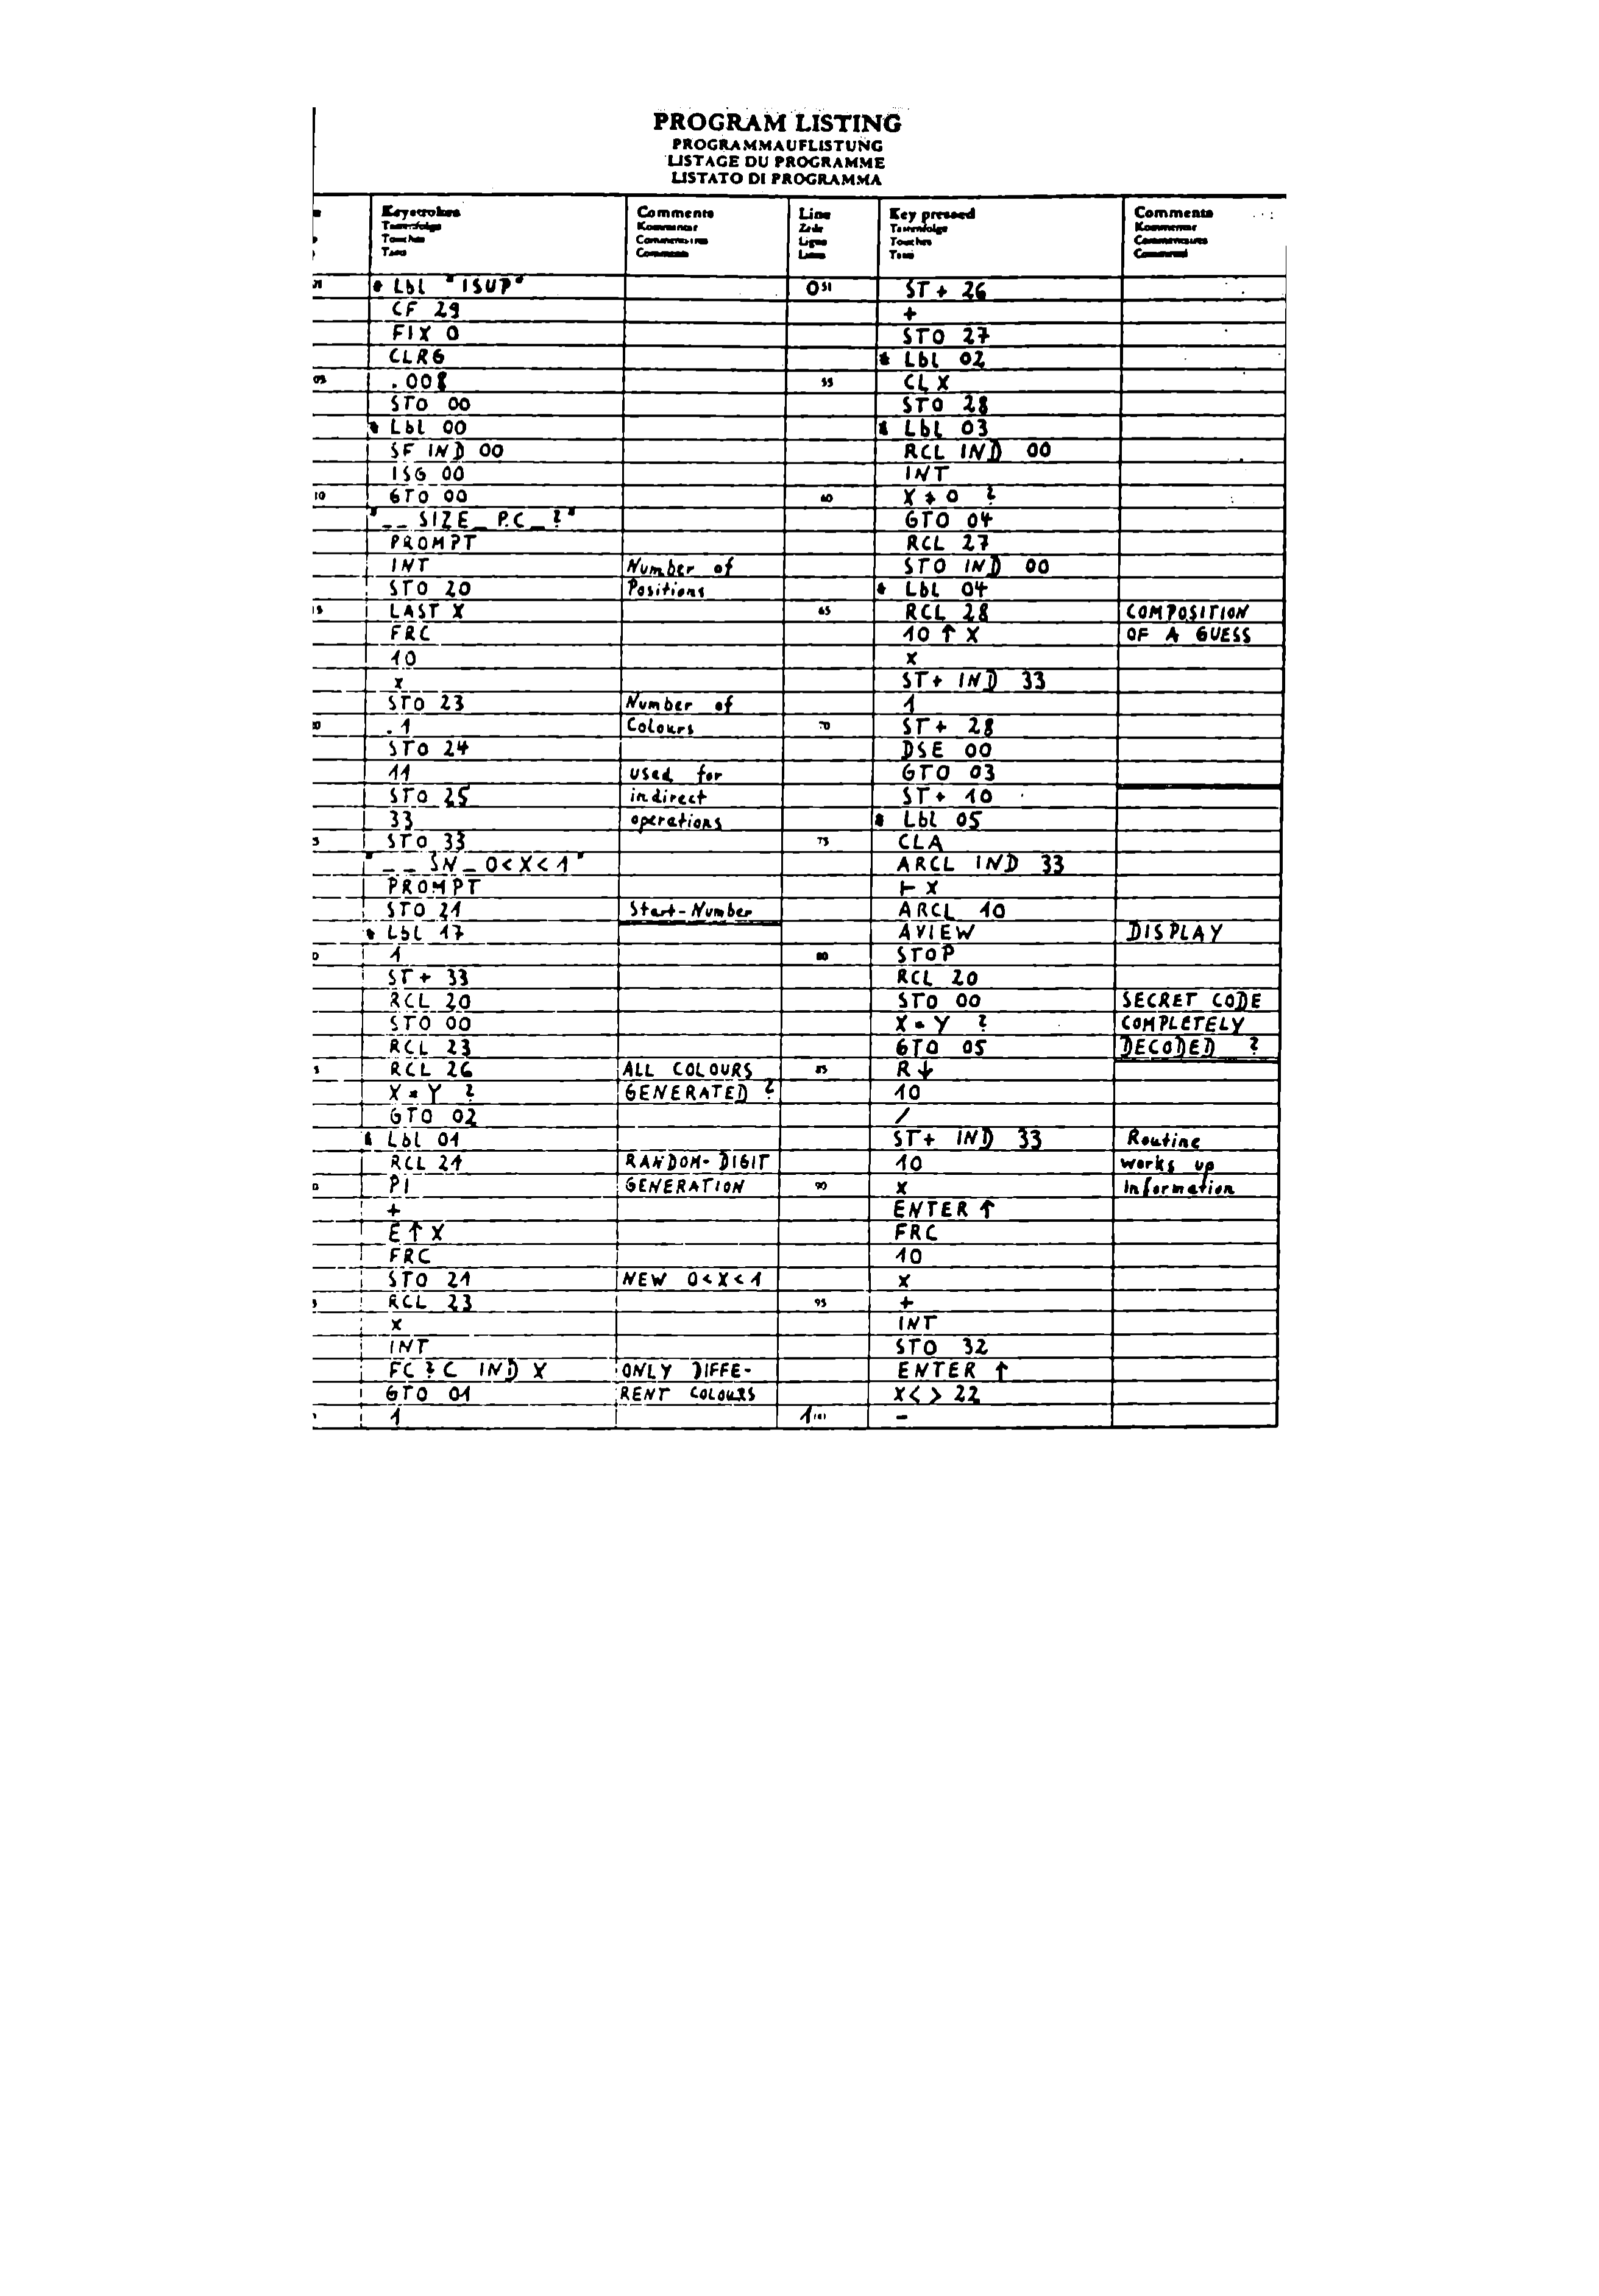 PROGRAM LISTING
PROGRAMMAUFLISTUNG
LISTAGE DU PROGRAMME
LISTATO DI PROGRAMMA
Keystrokes Comments Line Key pressed Comments
Tastenfolge Kommentar Zeile Tastenfolge Kommentar
Touches Commentaires Ligne Touches Commentaires
Tasti Commenti Linea Tasti Commenti
* Lbl "ISUP" 051 ST + 26
CF 29 +
FIX 0 STO 27
CLRG * Lbl 02
05 .008 55 CLX
STO 00 STO 28
* Lbl 00 * Lbl 03
SF IND 00 RCL IND 00
ISG 00 INT
10 GTO 00 60 X ≠ 0 ?
"__ SIZE_P.C_?" GTO 04
PROMPT RCL 27
INT Number of STO IND 00
STO 20 Positions * Lbl 04
15 LAST X 65 RCL 28 COMPOSITION
FRC 10 ↑ X OF A GUESS
10 x
x ST + IND 33
STO 23 Number of 1
20 .1 Colours 70 ST + 28
STO 24 DSE 00
11 used for GTO 03
STO 25 indirect ST + 10
33 operations * Lbl 05
5 STO 33 75 CLA
"__ SN_0<X<1" ARCL IND 33
PROMPT ⊢ X
STO 21 Start-Number ARCL 10
* Lbl 17 AVIEW DISPLAY
0 1 80 STOP
ST + 33 RCL 20
RCL 20 STO 00 SECRET CODE
STO 00 X = Y ? COMPLETELY
RCL 23 GTO 05 DECODED ?
5 RCL 26 ALL COLOURS 85 R↓
X = Y ? GENERATED ? 10
GTO 02 /
* Lbl 01 ST + IND 33 Routine
RCL 21 RANDOM-DIGIT 10 works up
0 PI GENERATION 90 x Information
+ ENTER ↑
E ↑ X FRC
FRC 10
STO 21 NEW 0<X<1 x
5 RCL 23 95 +
x INT
INT STO 32
FC?C IND X ONLY DIFFE- ENTER ↑
GTO 01 RENT COLOURS X<>22
1 100 -